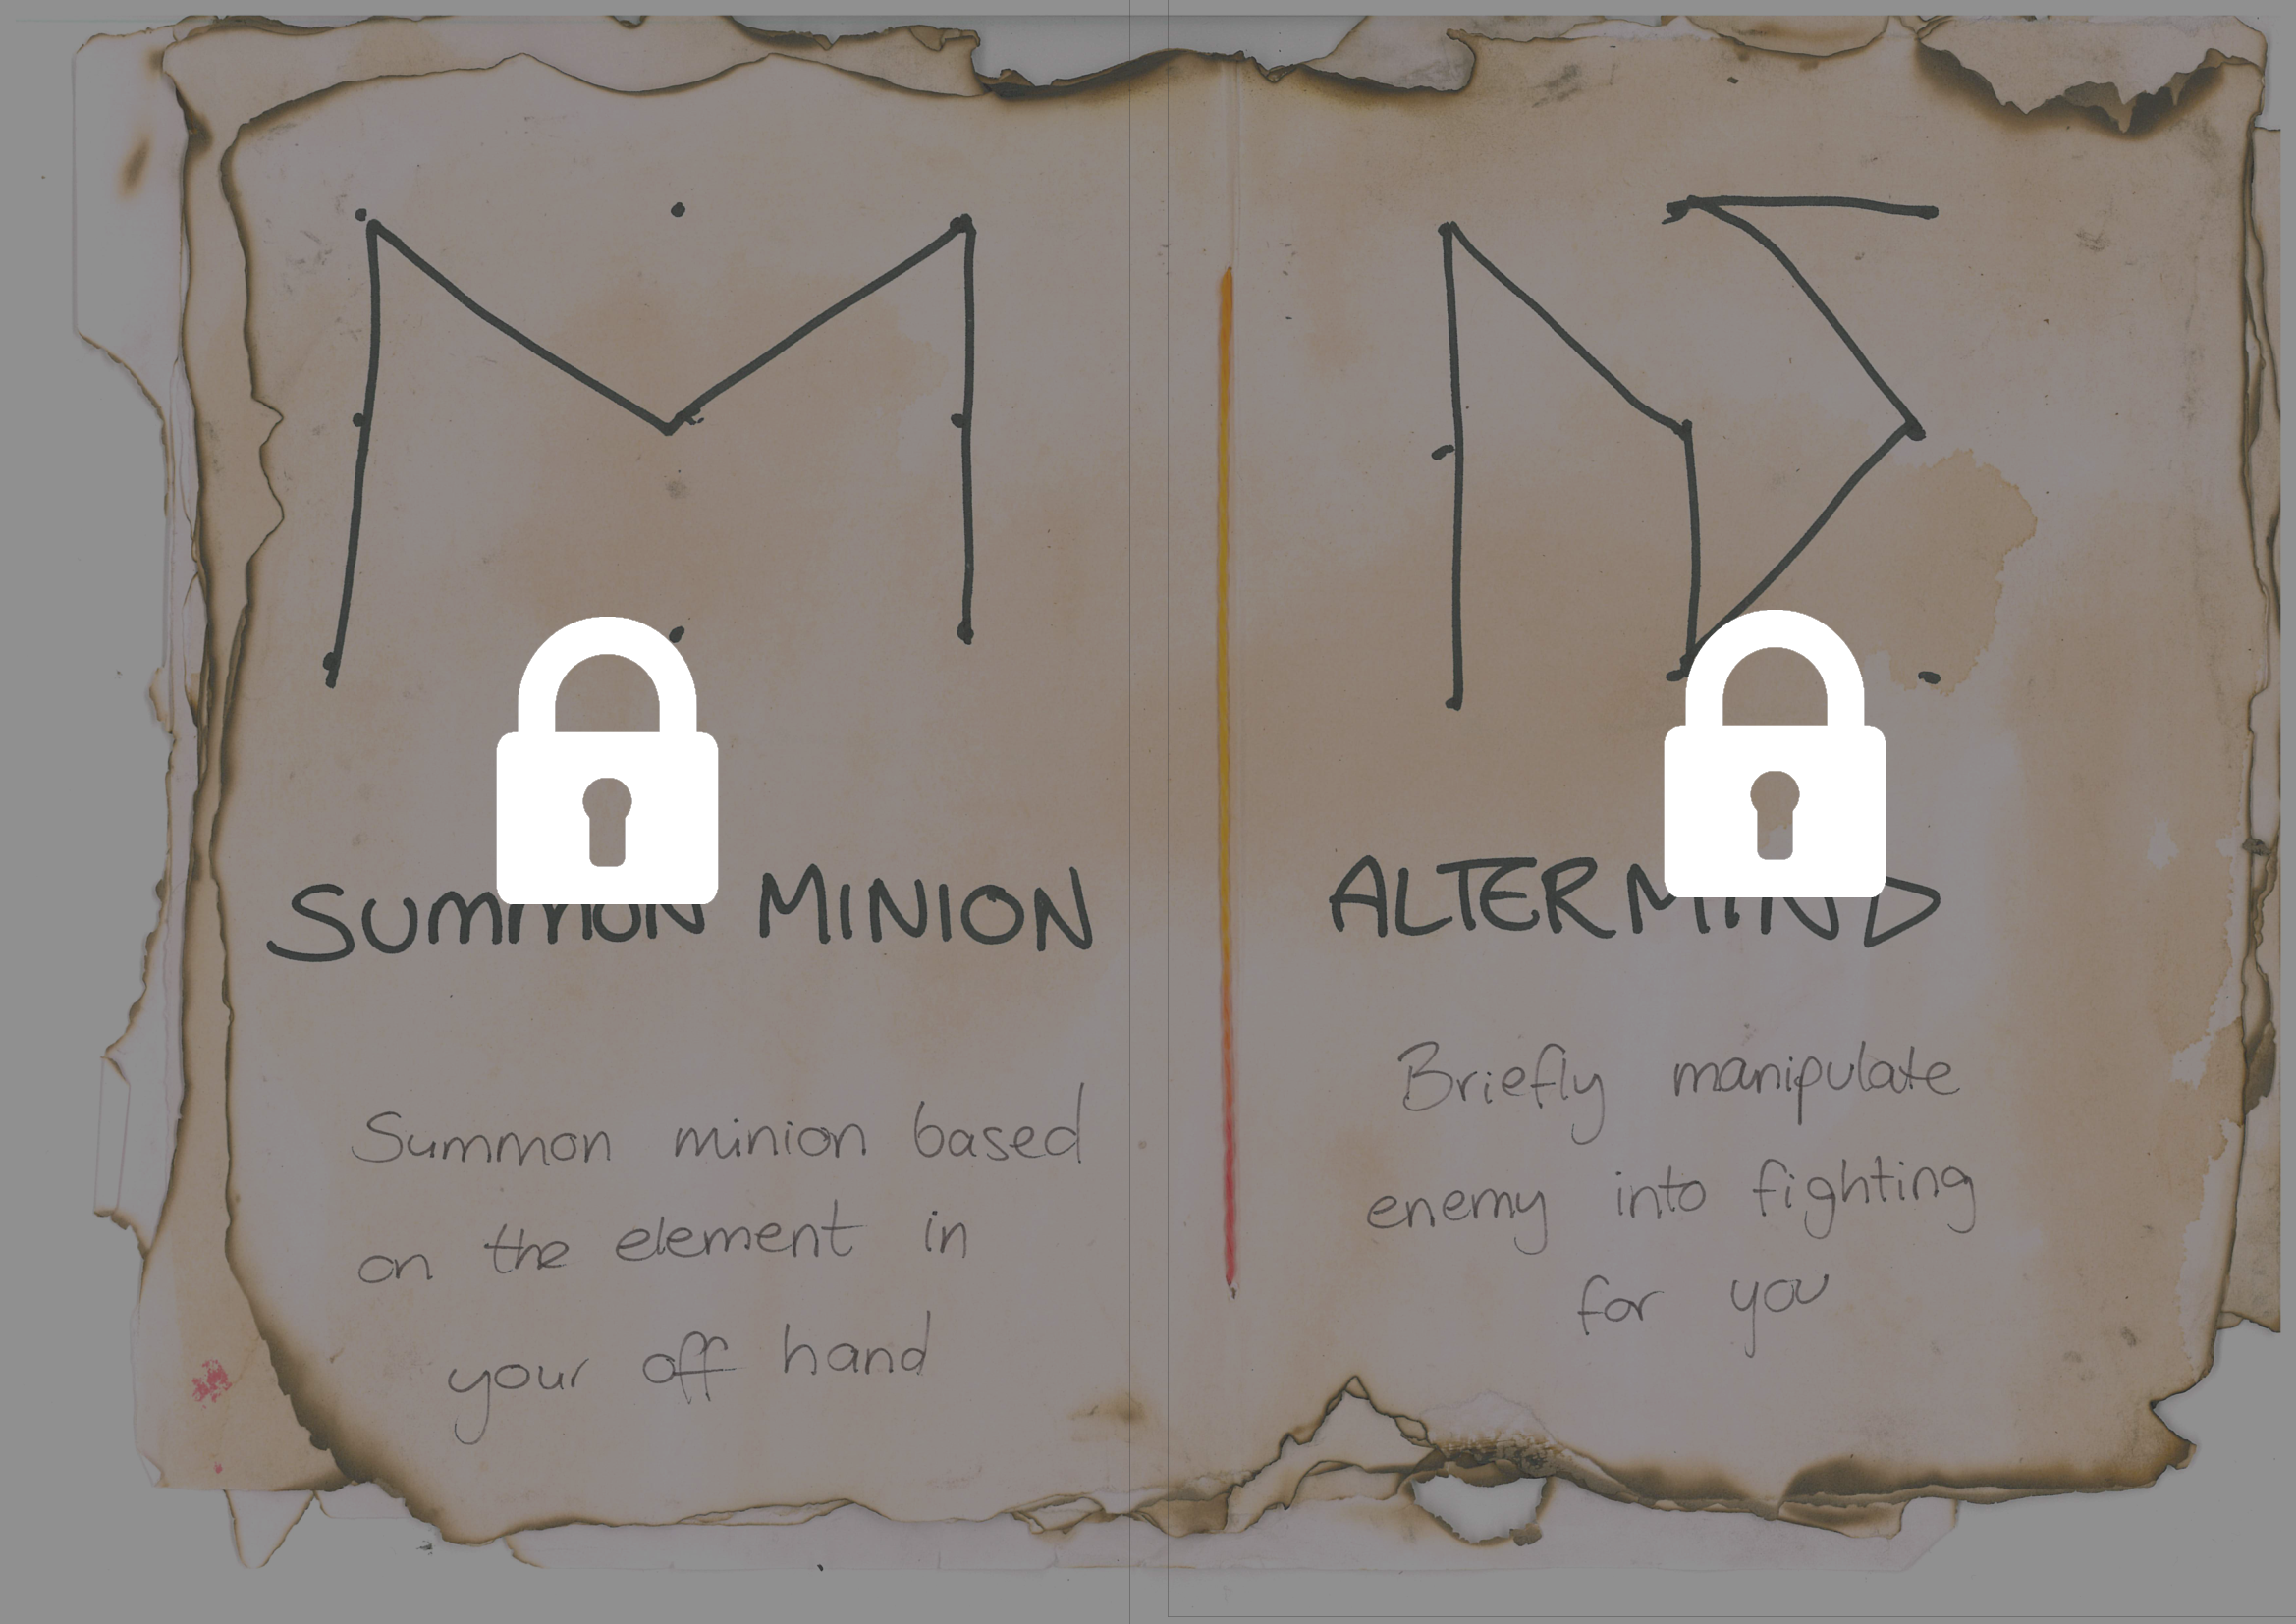 SUMMON MINION
Summon minion based
on the element in
your off hand
ALTER MIND
Briefly manipulate
enemy into fighting
for you